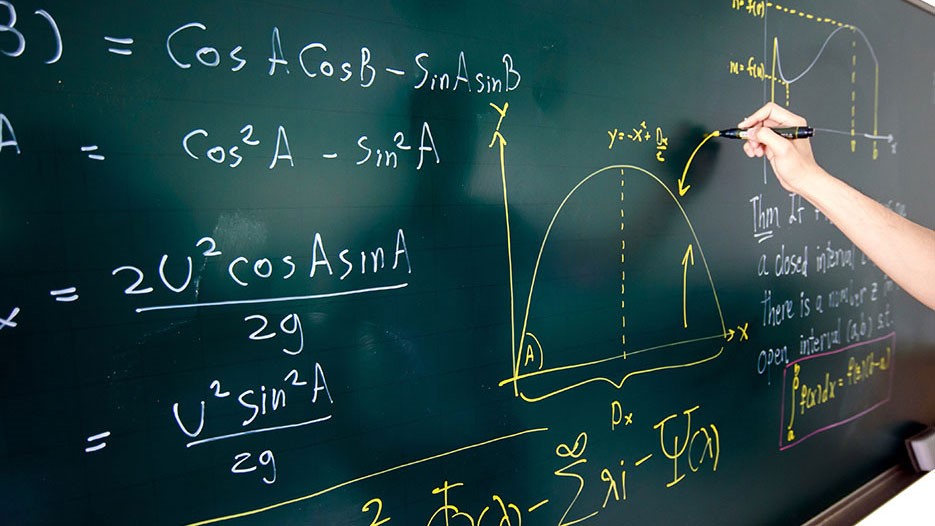 B) = Cos A CosB – SinA sinB
A = Cos²A – Sin²A
x = 2U² cosA sinA / 2g
= U² sin²A / 2g
Y
y = -x² +
A
X
Dx
m = f(u)
b
x
Thm If
a closed interval
there is a number z
open interval (a,b) s.t.
∫ f(x)dx = f(z)(b-a)
a
2
(λ) – ∑ λi – Ψ(λ)
∞